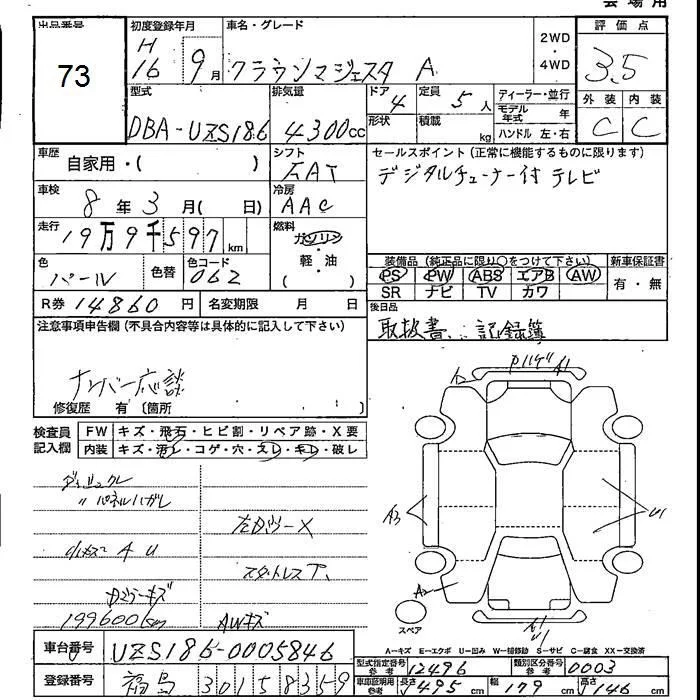 会場用
出品番号 初度登録年月 車名・グレード 評価点
73 H16 9月 クラウンマジェスタ A 2WD・4WD 3.5
型式 排気量 ドア 4 定員 5人 ディーラー・並行 外装 内装
DBA-UZS186 4300cc 形状 積載 kg モデル年式 年 C C
ハンドル 左・右
車歴 自家用・( ) シフト FAT セールスポイント (正常に機能するものに限ります)
デジタルチューナー付 テレビ
車検 8年3月( 日) 冷房 AAC
走行 19万9千597km 燃料 ガソリン・軽・油 ( )
色 パール 色替 色コード 062
装備品 (純正品に限り○をつけて下さい) 新車保証書
PS PW ABS エアB AW 有・無
SR ナビ TV カワ
R券 14860円 名変期限 月 日 後日品
取扱書、記録簿
注意事項申告欄 (不具合内容等は具体的に記入して下さい)
ナンバー応談
修復歴 有 〔箇所 〕
検査員記入欄 FW キズ・飛石・ヒビ割・リペア跡・X要
内装 キズ・汚レ・コゲ・穴・スレ・キレ・破レ
〃 パネルハガレ
小キズ A U
左Dミラー X
スタットレス下
Dミラーキズ
199600km AWキズ
A2 A1
A3 U1
A2
A1
U1
スペア
A-キズ E-エクボ U-凹み W-補修跡 S-サビ C-腐食 XX-交換済
車台番号 UZS186-0005846 型式指定番号 参考 12496 類別区分番号 参考 0003
登録番号 福島 301 5 8359 車庫証明用 参考 長さ 495cm 幅 179cm 高さ 146cm